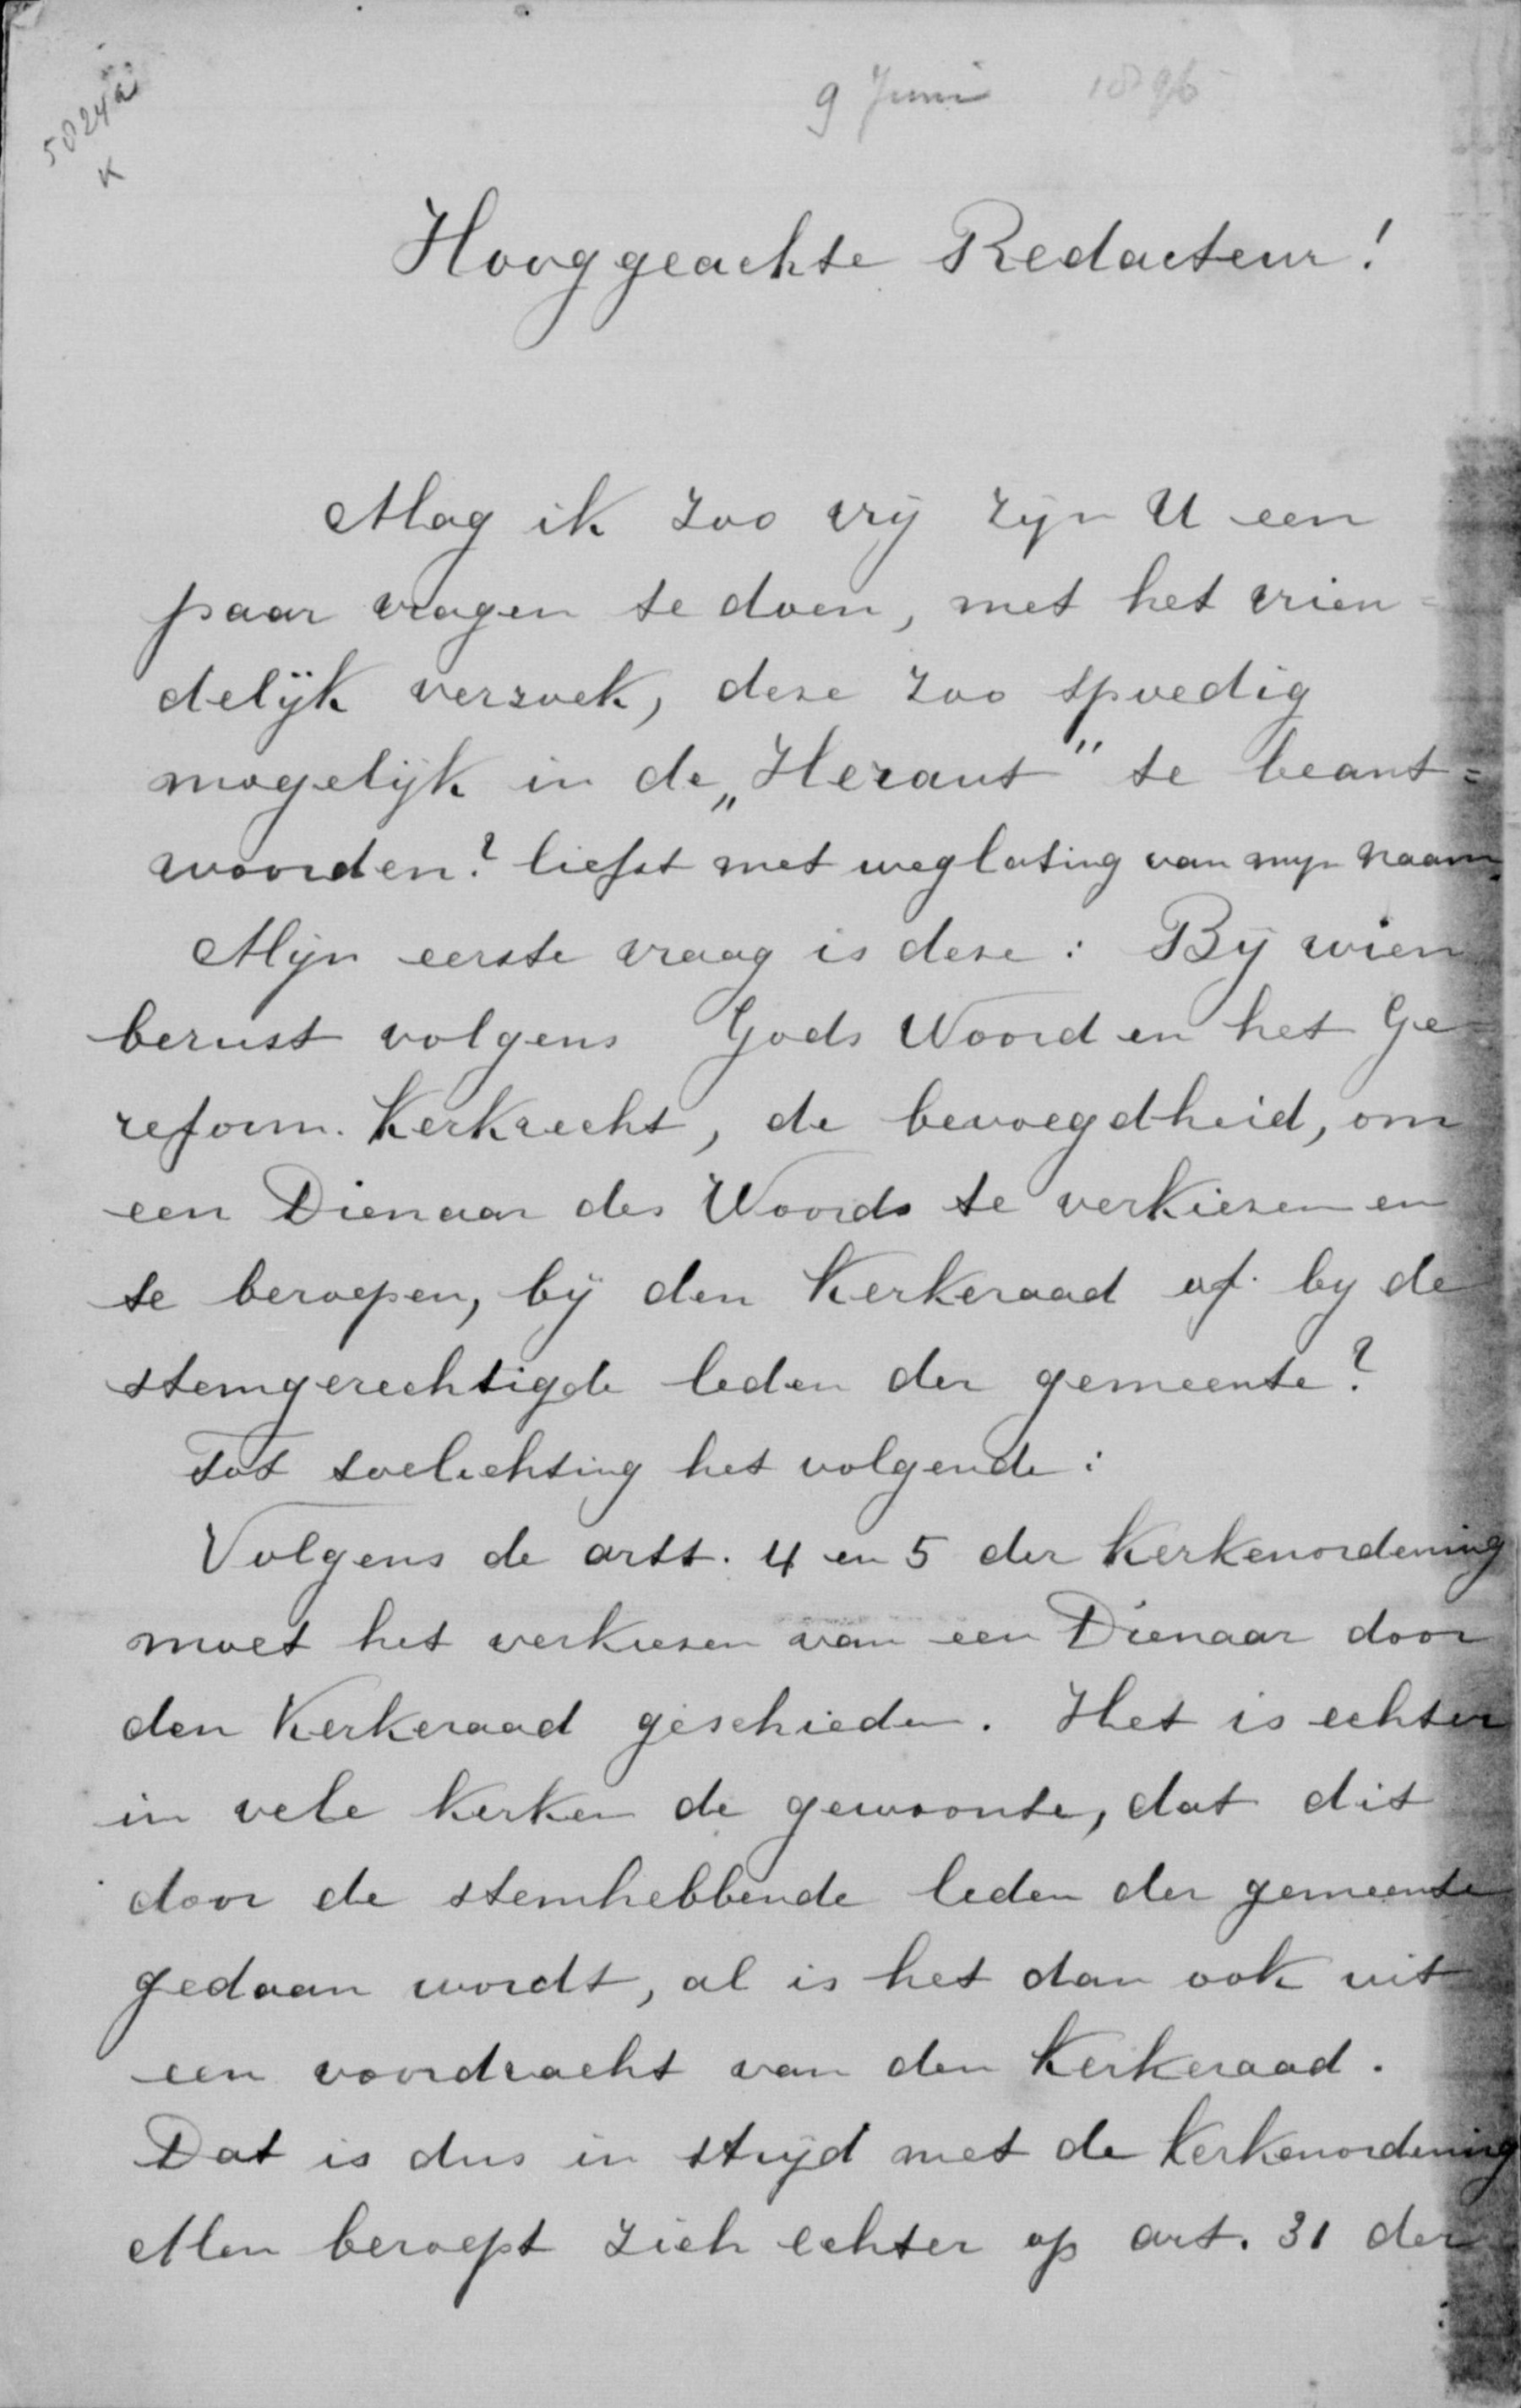 5024a
K
9 Juni 1896
Hooggeachte Redacteur!
Mag ik zoo vrij zijn U een
paar vragen te doen, met het vrien=
delijk verzoek, deze zoo spoedig
mogelijk in de „Heraut" te beant=
woorden? liefst met weglating van mijn naam.
Mijn eerste vraag is deze: Bij wien
berust volgens Gods Woord en het Ge=
reform. Kerkrecht, de bevoegdheid, om
een Dienaar des Woords te verkiezen en
te beroepen, bij den Kerkeraad of bij de
stemgerechtigde leden der gemeente?
Tot toelichting het volgende:
Volgens de artt. 4 en 5 der Kerkenordening
moet het verkiezen van een Dienaar door
den Kerkeraad geschieden. Het is echter
in vele Kerken de gewoonte, dat dit
door de stemhebbende leden der gemeente
gedaan wordt, al is het dan ook uit
een voordracht van den Kerkeraad.
Dat is dus in strijd met de Kerkenordening
Men beroept zich echter op art. 31 der